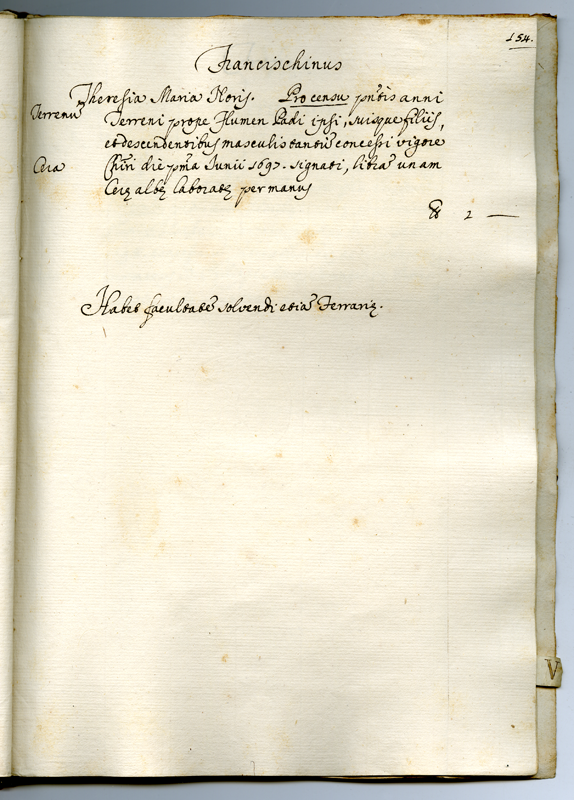 154.
Francischinus
Theresia Maria Floris. Pro censu pn̄tis anni
Terrenū Terreni prope Flumen Padi ipsi, suisque filiis,
et descendentibus masculis tantū concessi vigore
Cera Chiri die pm̄a Iunii 1697. signati, libra unam
Ceræ albæ laboratæ per manus
2 —
Habet facultatē solvendi etiā Ferrariæ.
V